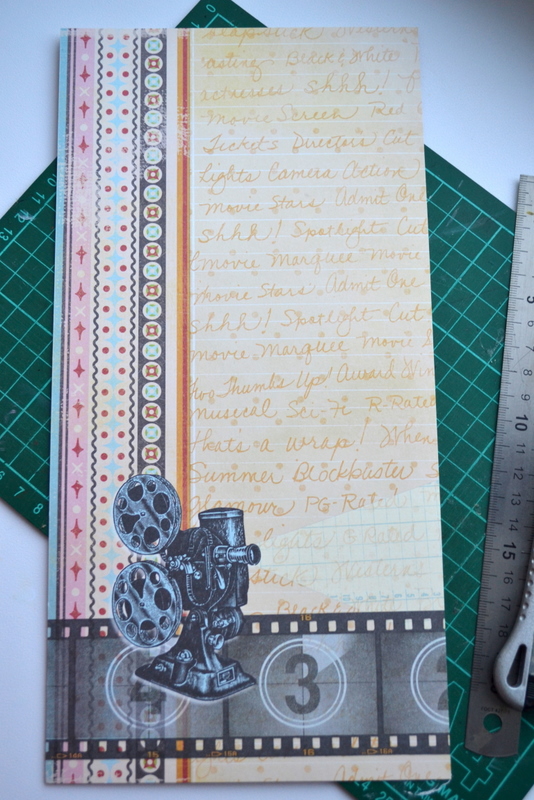 slapstick Dressing
casting Black & White
actresses shhh!
Movie Screen Red
Tickets Director's Cut
Lights Camera Action
movie Stars Admit One
shhh! Spotlight Cut
movie Marquee Movie
Movie Stars Admit One
shhh! Spotlight Cut
movie Marquee Movie
Two Thumbs Up! Award Win
musical Sci-Fi R-Rated
that's a wrap! When
Summer Blockbuster S
Glamour PG-Rat
lights G Rated
stick
Black &
16
3
2
16
15A
16
Admit One
13
12
11
10
9
8
7
5
6
7
8
9
10
11
12
13
14
15
16
17
18